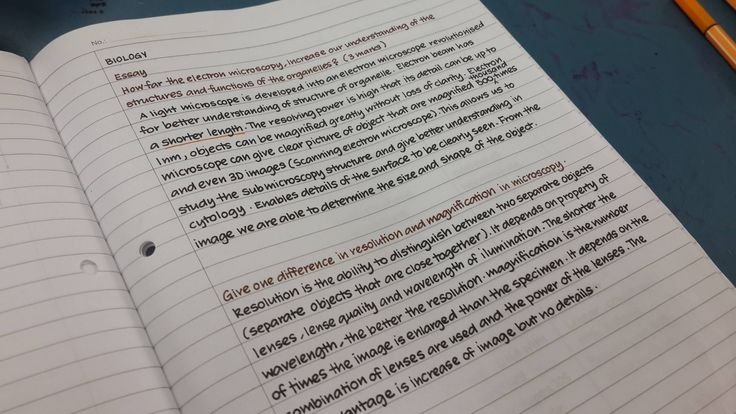 No.:
BIOLOGY
Essay
How far the electron microscopy, increase our understanding of the
structures and functions of the organelles? (3 marks)
A light microscope is developed into an electron microscope revolutionised
for better understanding of structure of organelle. Electron beam has
a shorter length. The resolving power is high that its detail can be up to
1nm, objects can be magnified greatly without loss of clarity. Electron
microscope can give clear picture of object that are magnified 500 thousand times
and even 3D images (scanning electron microscope). This allows us to
study the submicroscopy structure and give better understanding in
cytology. Enables details of the surface to be clearly seen. From the
image we are able to determine the size and shape of the object.
Give one difference in resolution and magnification in microscopy.
Resolution is the ability to distinguish between two separate objects
(separate objects that are close together). It depends on property of
lenses, lense quality and wavelength of ilumination. The shorter the
wavelength, the better the resolution. Magnification is the number
of times the image is enlarged than the specimen. It depends on the
combination of lenses are used and the power of the lenses. The
is increase of image but no details.